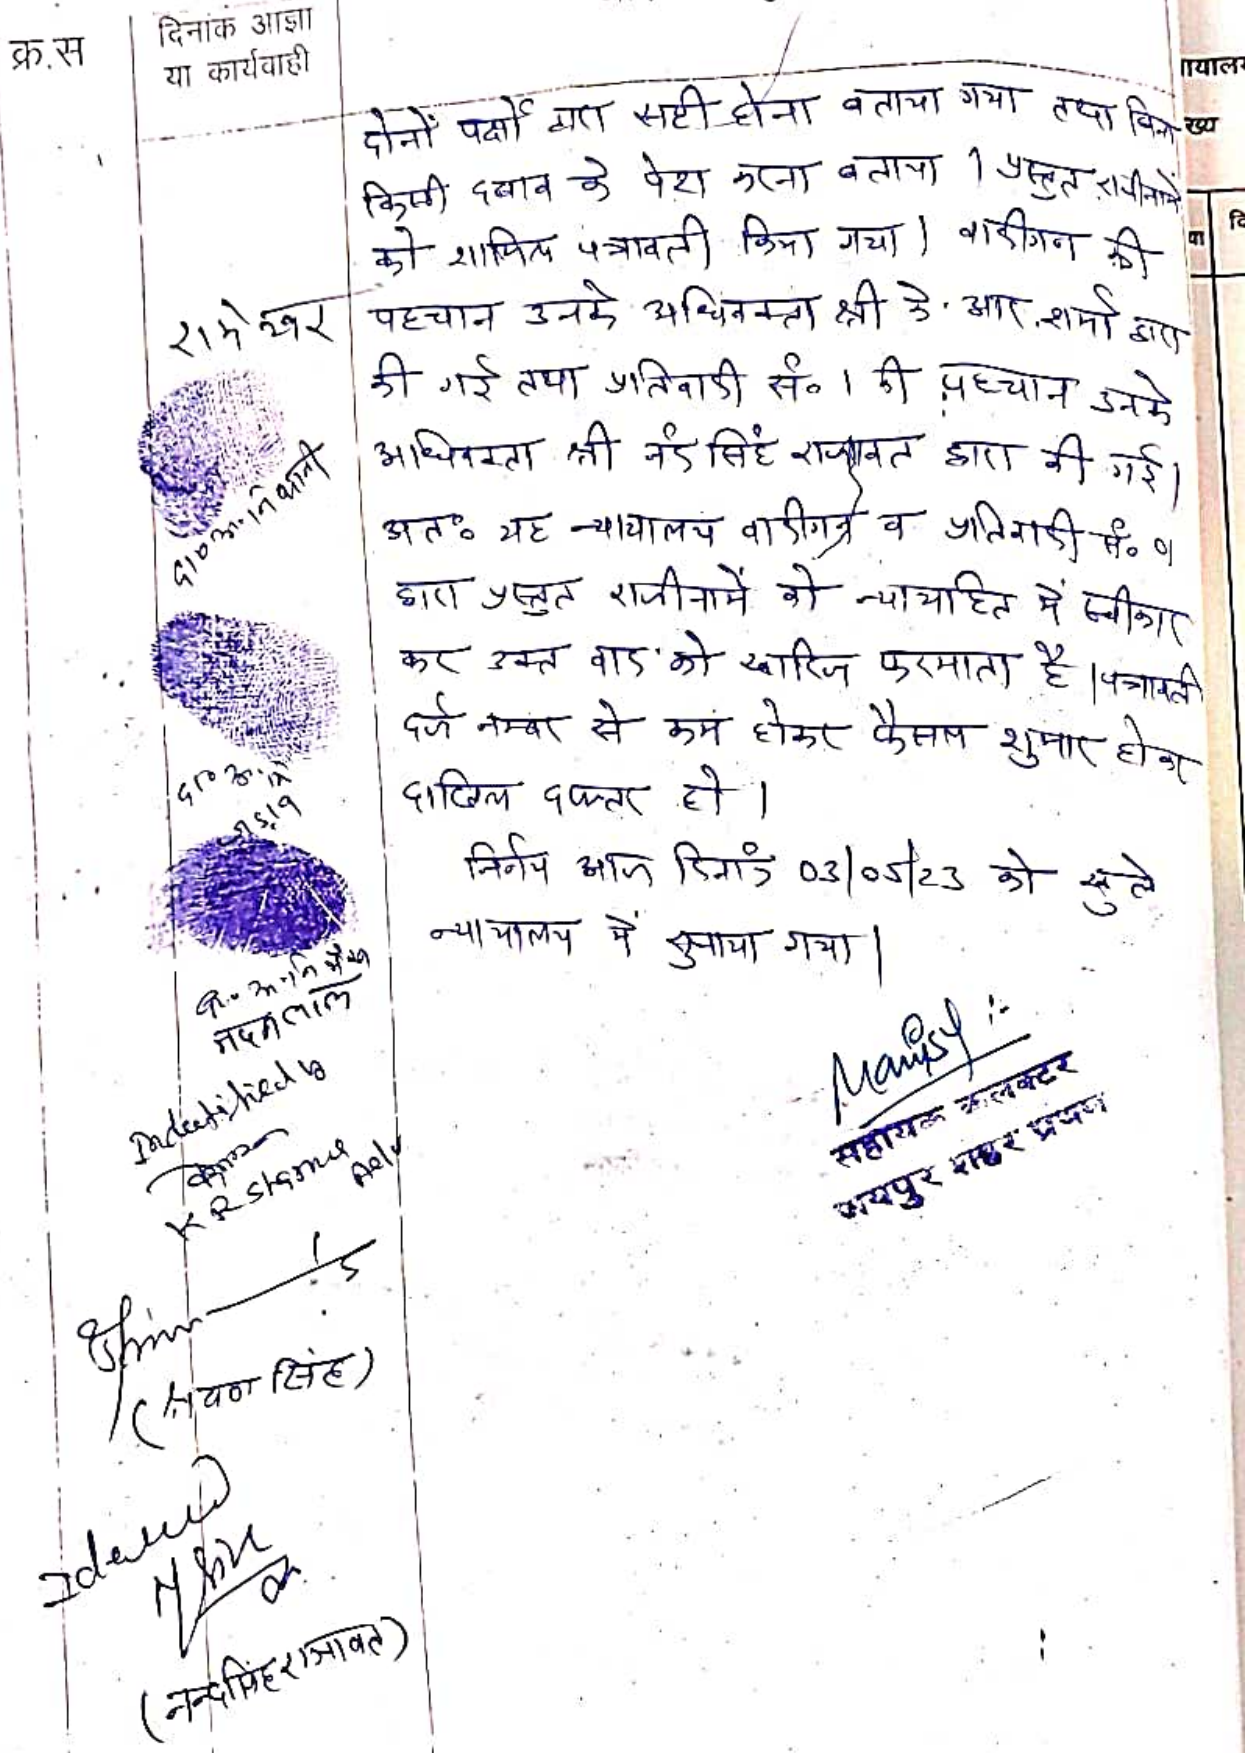 क्र.स
दिनांक आज्ञा
या कार्यवाही
दोनों पक्षों द्वारा सही होना बताया गया तथा बिना
किसी दबाव के पेश करना बताया । प्रस्तुत राजीनामें
को शामिल पत्रावली किया गया । वादीगन की
पहचान उनके अधिवक्ता श्री के. आर. शर्मा द्वारा
की गई तथा प्रतिवादी सं० 1 की पहचान उनके
अधिवक्ता श्री नंद सिंह राजावत द्वारा की गई ।
अतः यह न्यायालय वादीगन व प्रतिवादी सं० 01
द्वारा प्रस्तुत राजीनामें को न्यायहित में स्वीकार
कर उक्त वाद को खारिज फरमाता है । पत्रावली
दर्ज नम्बर से कम होकर फैसल शुमार होकर
दाखिल दफ्तर हो ।
निर्णय आज दिनांक 03/05/23 को खुले
न्यायालय में सुनाया गया ।
सहायक कलक्टर
जयपुर शहर प्रथम
रामेश्वर
नि०
K R Sharma Adv
(श्रवण सिंह)
(नन्दसिंह राजावत)
यालय
ख्य